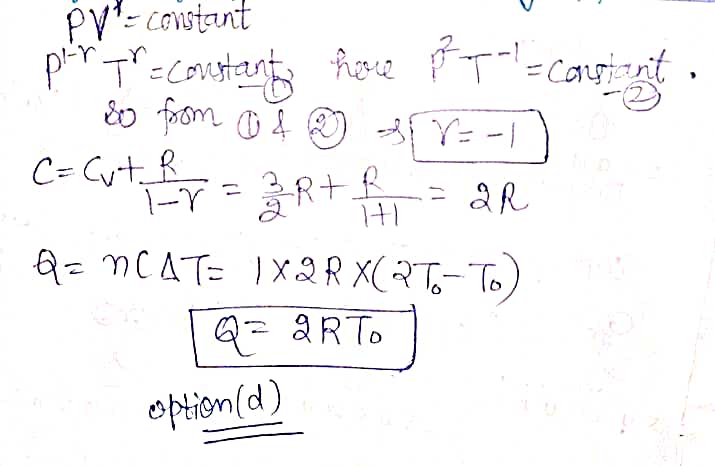 PV^γ = constant
P^{1-γ} T^γ = constant, -① here P^2 T^{-1} = constant. -②
so from ① & ② ⇒ γ = -1
C = Cv + R/(1-γ) = 3/2 R + R/(1+1) = 2R
Q = nCΔT = 1×2R×(2T₀-T₀)
Q = 2RT₀
option(d)